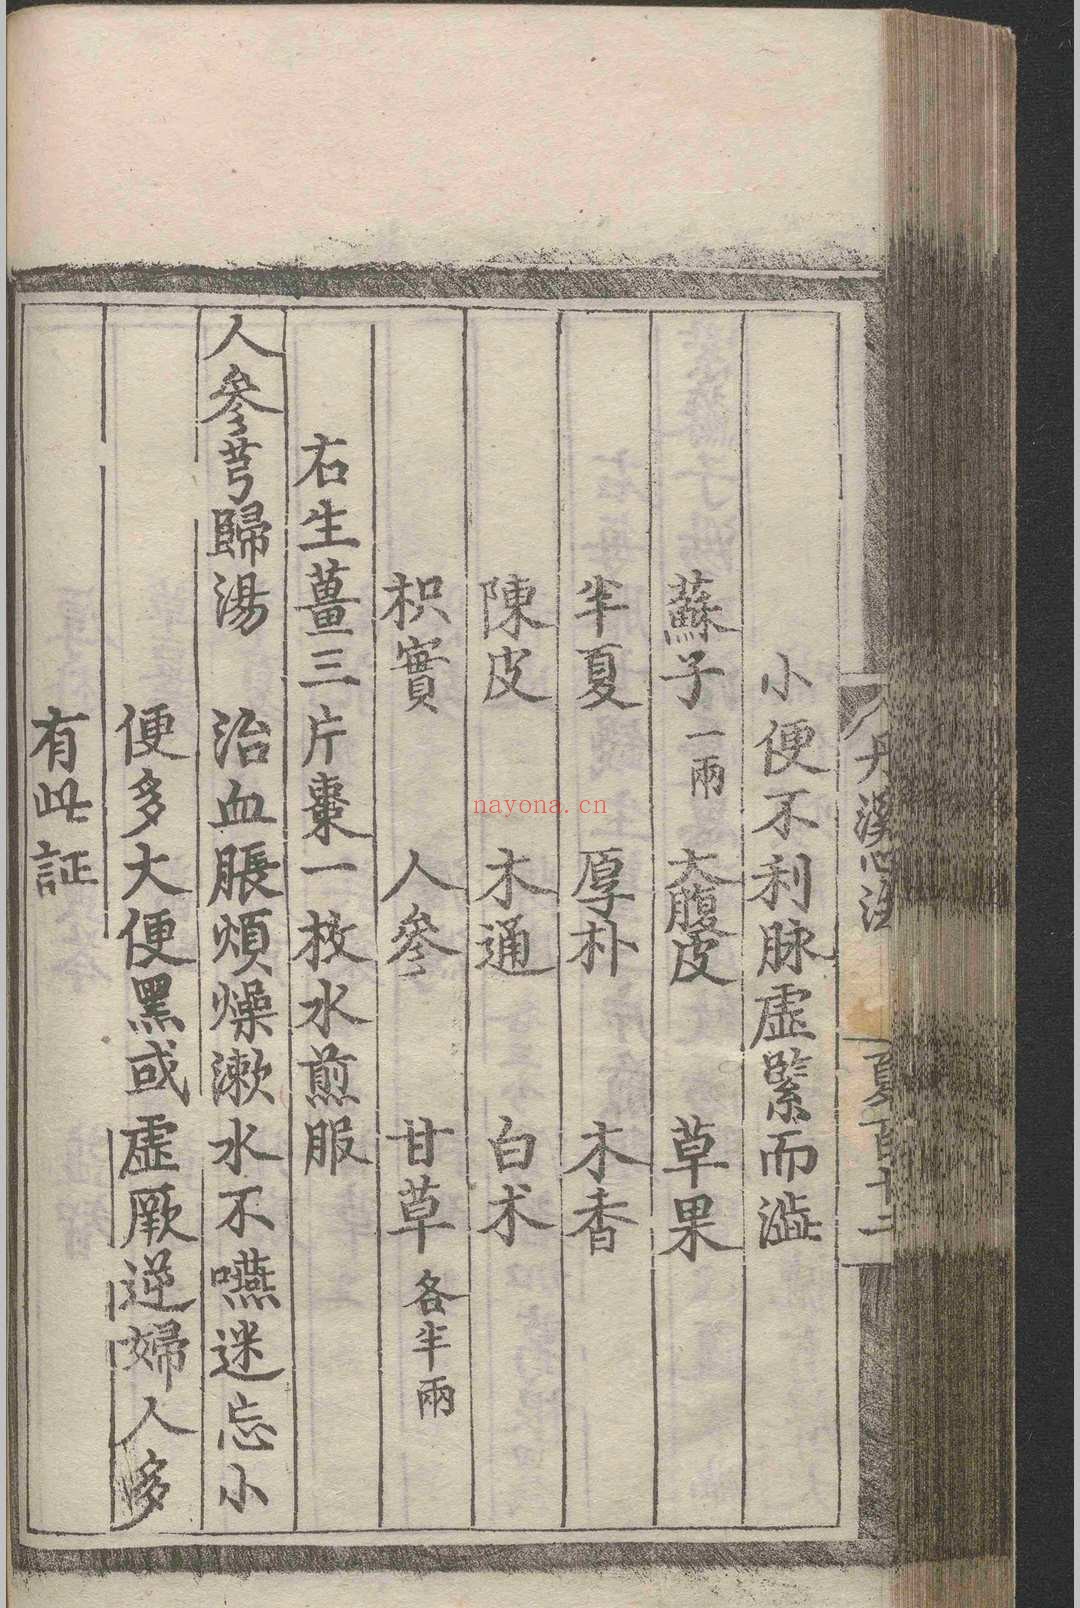 小便不利脉虛緊而澁
蘇子一兩 大腹皮 草果
半夏 厚朴 木香
陳皮 木通 白术
枳實 人參 甘草各半兩
右生薑三片棗一枚水煎服
人參芎歸湯 治血脹煩燥漱水不嚥迷忘小
便多大便黑或虛厥逆婦人多
有此証
丹溪心法
nayona.cn